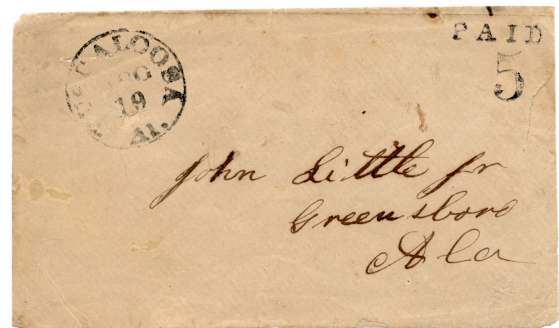 TUSKALOOSA
AUG
19
Al.
PAID
5
John Little Jr
Greensboro
Ala